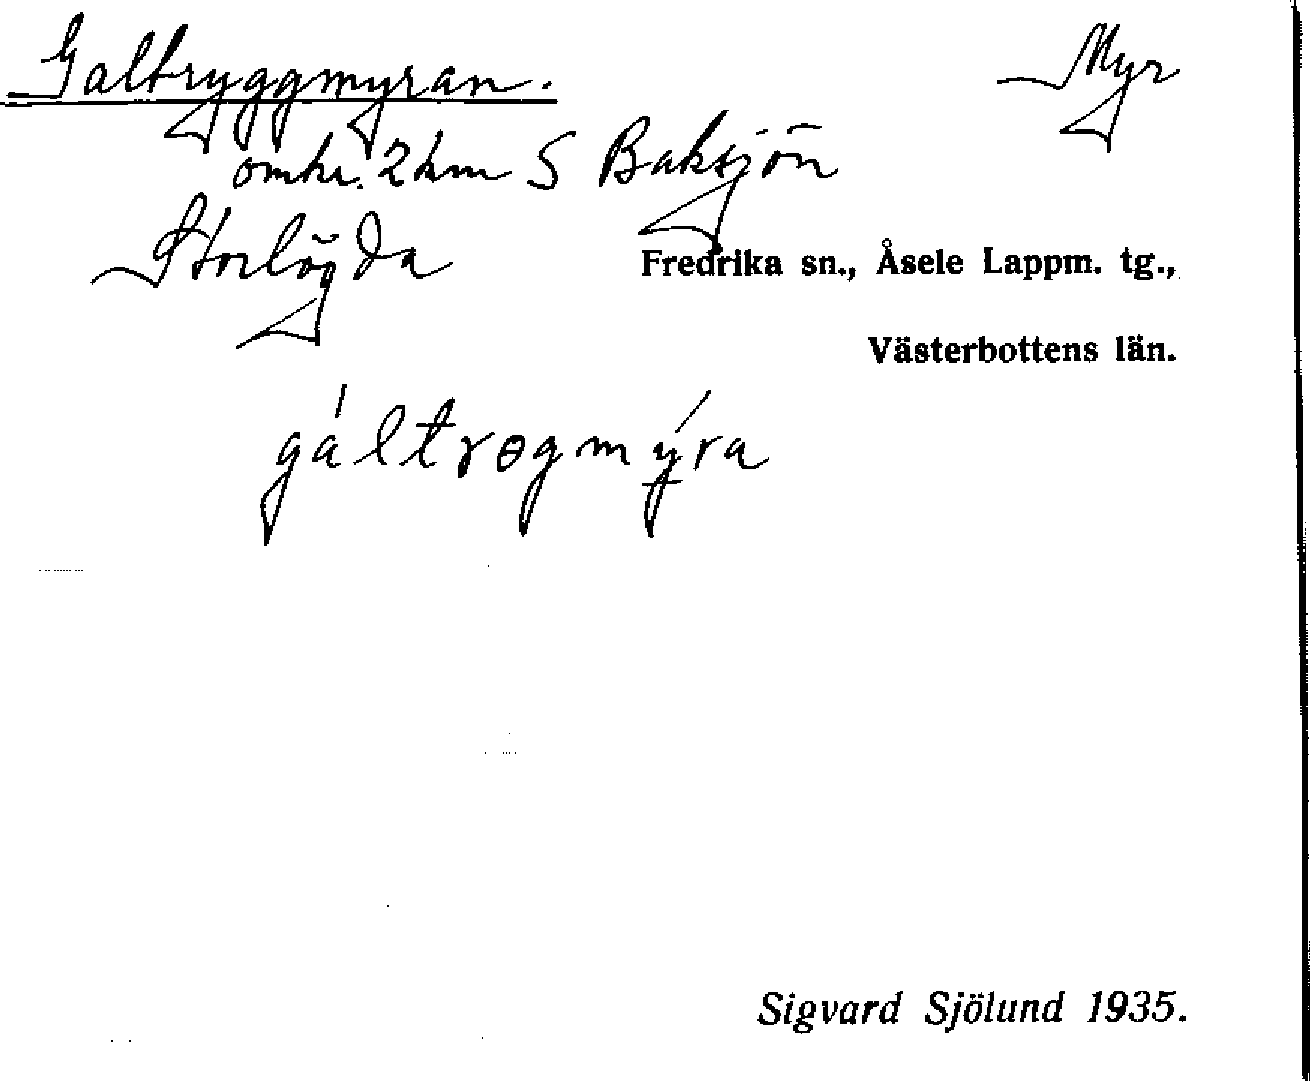 Galtryggmyran. Myr
omkr. 2 km S Baksjön
Storlögda
Fredrika sn., Åsele Lappm. tg.,
Västerbottens län.
gáltrɵgmýra
Sigvard Sjölund 1935.